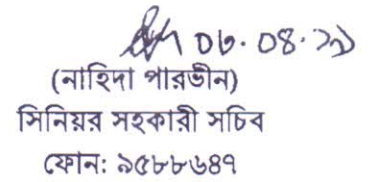 ০৬.০৪.১১
(নাহিদা পারভীন)
সিনিয়র সহকারী সচিব
ফোন: ৯৫৮৮৬৪৭